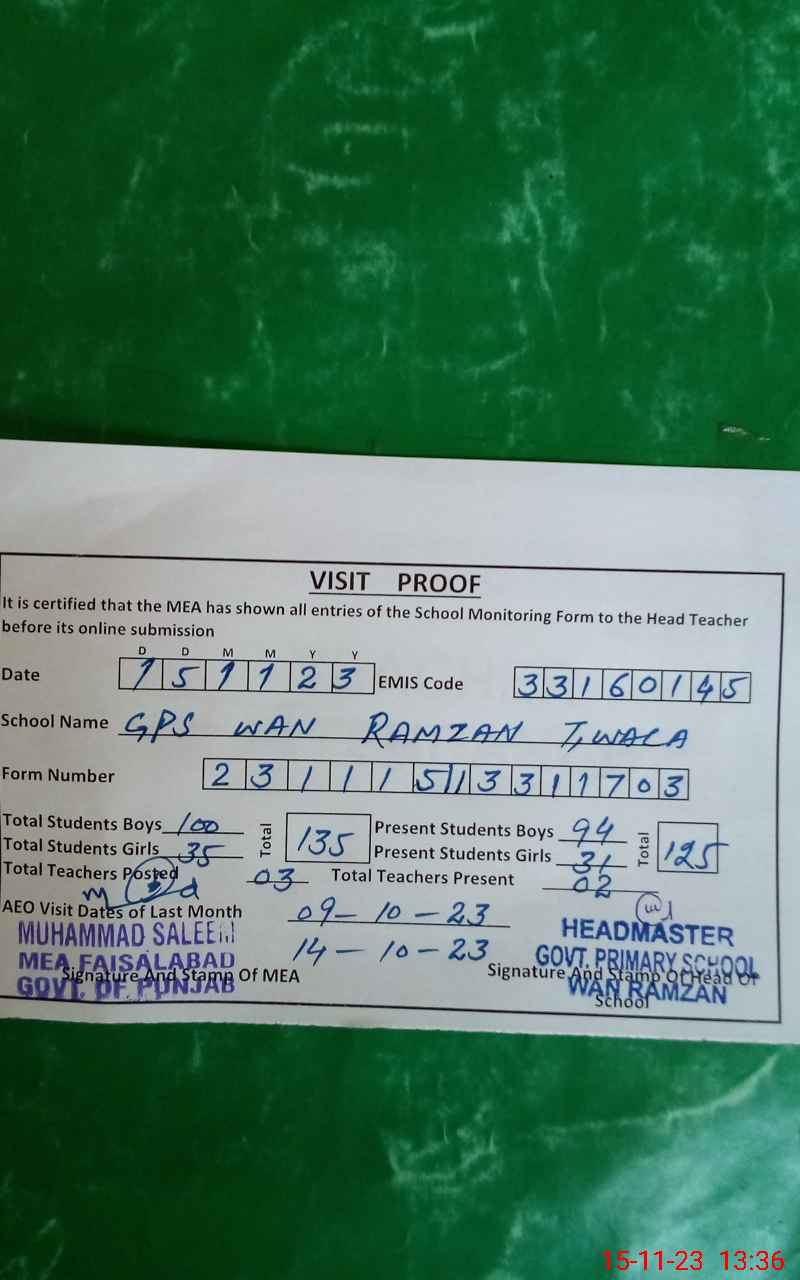 VISIT PROOF
It is certified that the MEA has shown all entries of the School Monitoring Form to the Head Teacher
before its online submission
D D M M Y Y
Date 1 5 1 1 2 3 EMIS Code 3 3 1 6 0 1 4 5
School Name GPS WAN RAMZAN T,WALA
Form Number 2 3 1 1 1 5 1 3 3 1 1 7 0 3
Total Students Boys 100 Total 135 Present Students Boys 94 Total 125
Total Students Girls 35 Present Students Girls 31
Total Teachers Posted 03 Total Teachers Present 02
AEO Visit Dates of Last Month 09-10-23
14-10-23
MUHAMMAD SALEEM
MEA FAISALABAD
GOVT. OF PUNJAB
Signature And Stamp Of MEA
HEADMASTER
GOVT. PRIMARY SCHOOL
WAN RAMZAN
Signature And Stamp Of Head Of
School
15-11-23 13:36